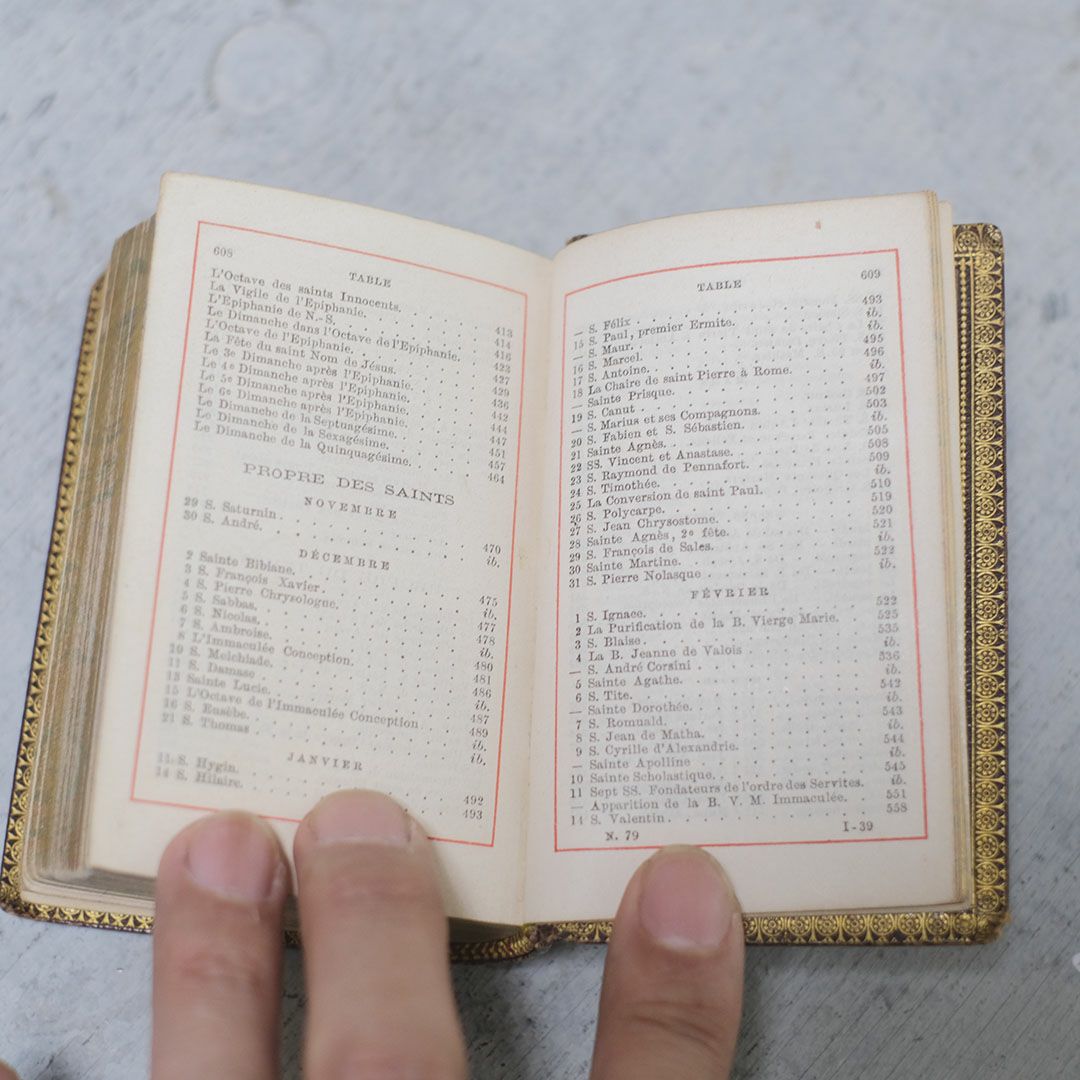 608
TABLE
L'Octave des saints Innocents. 413
La Vigile de l'Epiphanie. 414
L'Epiphanie de N.-S. 416
Le Dimanche dans l'Octave de l'Epiphanie. 423
L'Octave de l'Epiphanie. 427
La Fête du saint Nom de Jésus. 429
Le 3e Dimanche après l'Epiphanie. 436
Le 4e Dimanche après l'Epiphanie. 442
Le 5e Dimanche après l'Epiphanie. 444
Le 6e Dimanche après l'Epiphanie. 447
Le Dimanche de la Septuagésime. 451
Le Dimanche de la Sexagésime. 457
Le Dimanche de la Quinquagésime. 464
PROPRE DES SAINTS
NOVEMBRE
29 S. Saturnin 470
30 S. André. ib.
DÉCEMBRE
2 Sainte Bibiane. 475
3 S. François Xavier. ib.
4 S. Pierre Chrysologue. 477
5 S. Sabbas. 478
6 S. Nicolas. ib.
7 S. Ambroise. 480
8 L'Immaculée Conception. 481
10 S. Melchiade. 486
11 S. Damase ib.
13 Sainte Lucie. 487
15 L'Octave de l'Immaculée Conception 489
16 S. Eusèbe. ib.
21 S. Thomas ib.
JANVIER
11 S. Hygin. 492
14 S. Hilaire. 493
TABLE
609
— S. Félix 493
15 S. Paul, premier Ermite. ib.
— S. Maur. ib.
16 S. Marcel. 495
17 S. Antoine. 496
18 La Chaire de saint Pierre à Rome. ib.
— Sainte Prisque. 497
19 S. Canut. 502
— S. Marius et ses Compagnons. 503
20 S. Fabien et S. Sébastien. ib.
21 Sainte Agnès. 505
22 SS. Vincent et Anastase. 508
23 S. Raymond de Pennafort. 509
24 S. Timothée. ib.
25 La Conversion de saint Paul. 510
26 S. Polycarpe. 519
27 S. Jean Chrysostome. 520
28 Sainte Agnès, 2e fête. 521
29 S. François de Sales. ib.
30 Sainte Martine. 522
31 S. Pierre Nolasque ib.
FÉVRIER
1 S. Ignace. 522
2 La Purification de la B. Vierge Marie. 525
3 S. Blaise. 535
4 La B. Jeanne de Valois ib.
— S. André Corsini 536
5 Sainte Agathe. ib.
6 S. Tite. 542
— Sainte Dorothée. ib.
7 S. Romuald. 543
8 S. Jean de Matha. ib.
9 S. Cyrille d'Alexandrie. 544
— Sainte Apolline ib.
10 Sainte Scholastique. 545
11 Sept SS. Fondateurs de l'ordre des Servites. ib.
— Apparition de la B. V. M. Immaculée. 551
14 S. Valentin 558
N. 79
I-39